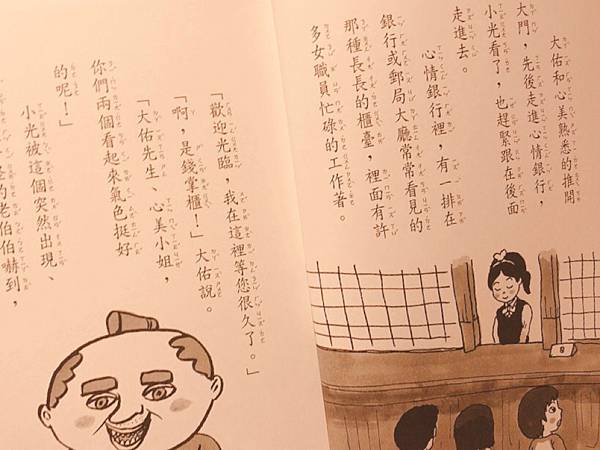 大佑和心美熟悉的推開
大門，先後走進心情銀行，
小光看了，也趕緊跟在後面
走進去。
心情銀行裡，有一排在
銀行或郵局大廳常常看見的
那種長長的櫃臺，裡面有許
多女職員忙碌的工作著。
「歡迎光臨，我在這裡等您很久了。」
「啊，是錢掌櫃！」大佑說。
「大佑先生、心美小姐，
你們兩個看起來氣色挺好
的呢！」
小光被這個突然出現、
的老伯伯嚇到，